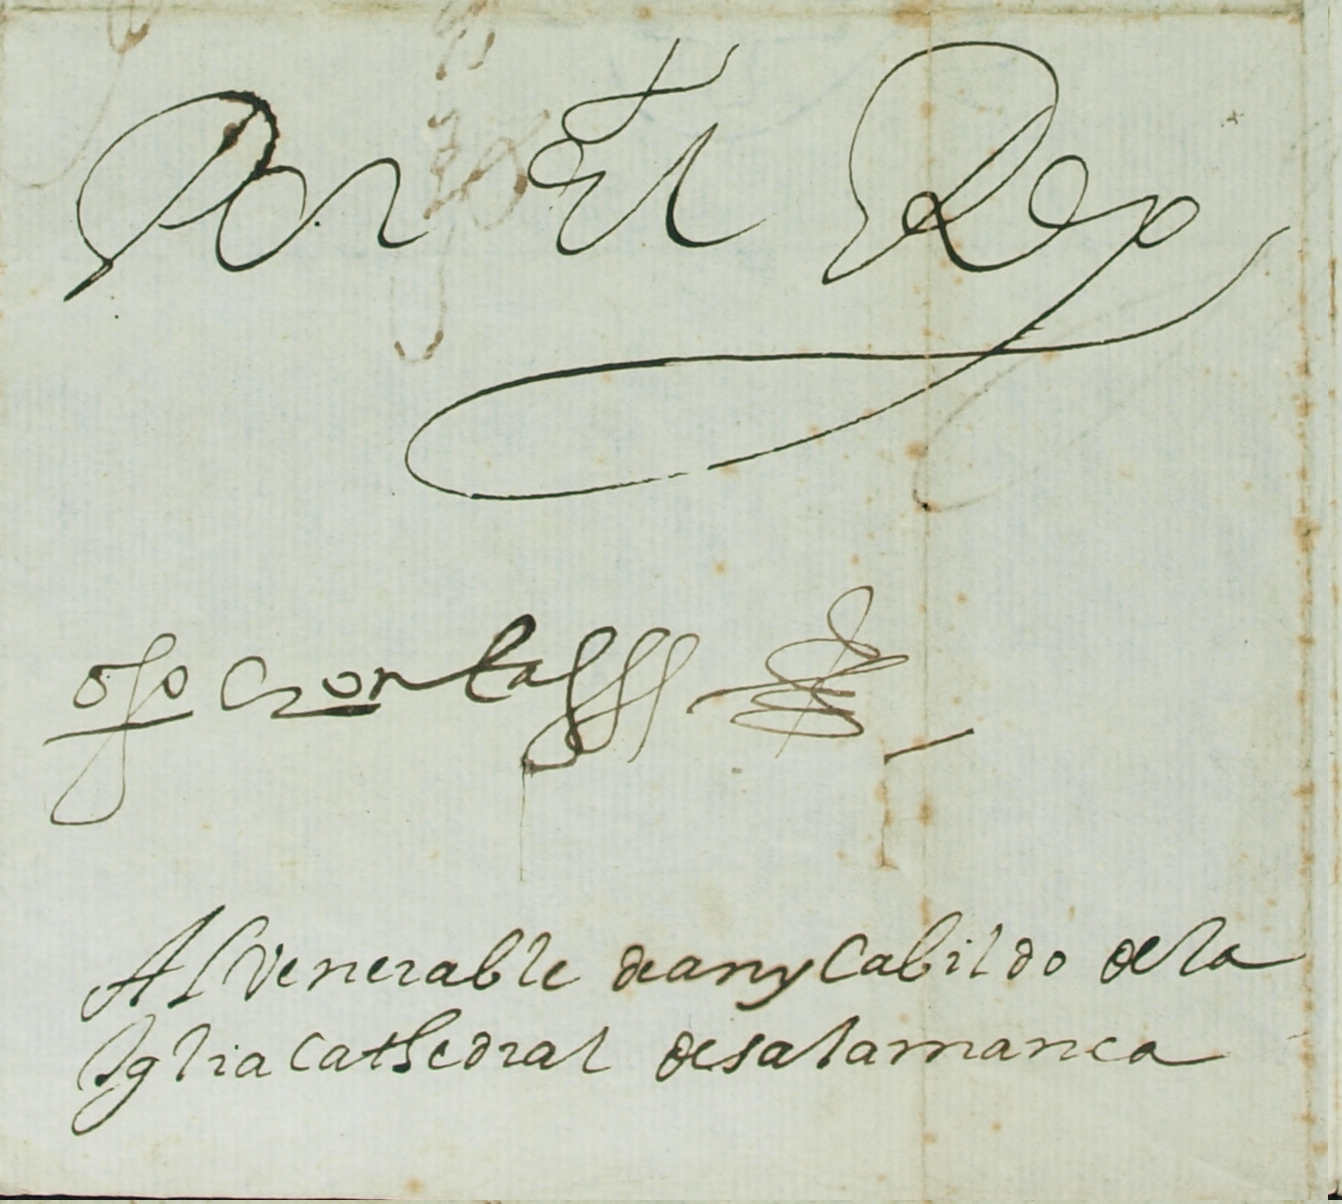 Por El Rey
Al Venerable dean y Cabildo de la
Iglia cathedral de salamanca